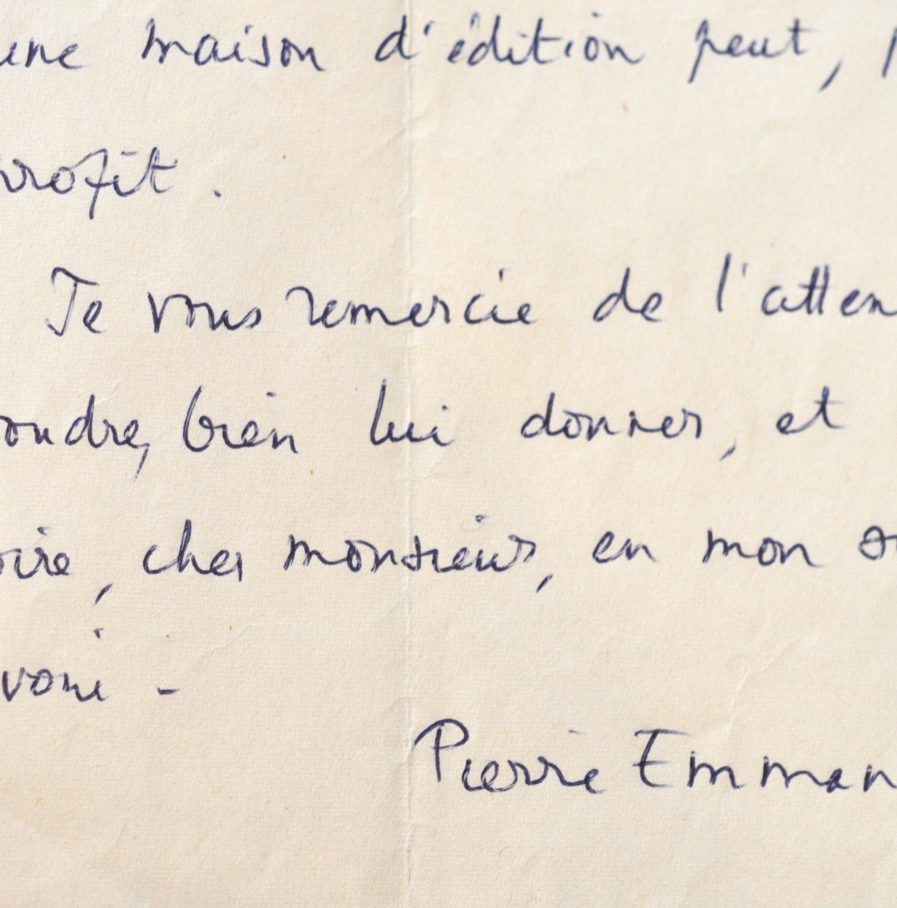 une maison d'édition peut, p
profit.
Je vous remercie de l'atten
oudrez bien lui donner, et
oire, cher monsieur, en mon s
voué -
Pierre Emman